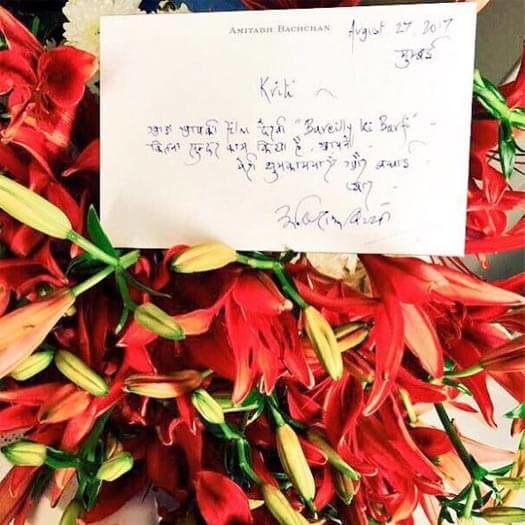 AMITABH BACHCHAN
August 27, 2017
मुम्बई
Kriti -
आज आपकी film देखी "Bareilly Ki Barfi" -
कितना सुन्दर काम किया है आपने -
मेरी शुभकामनाएँ और बधाई -
स्नेह -
अमिताभ बच्चन